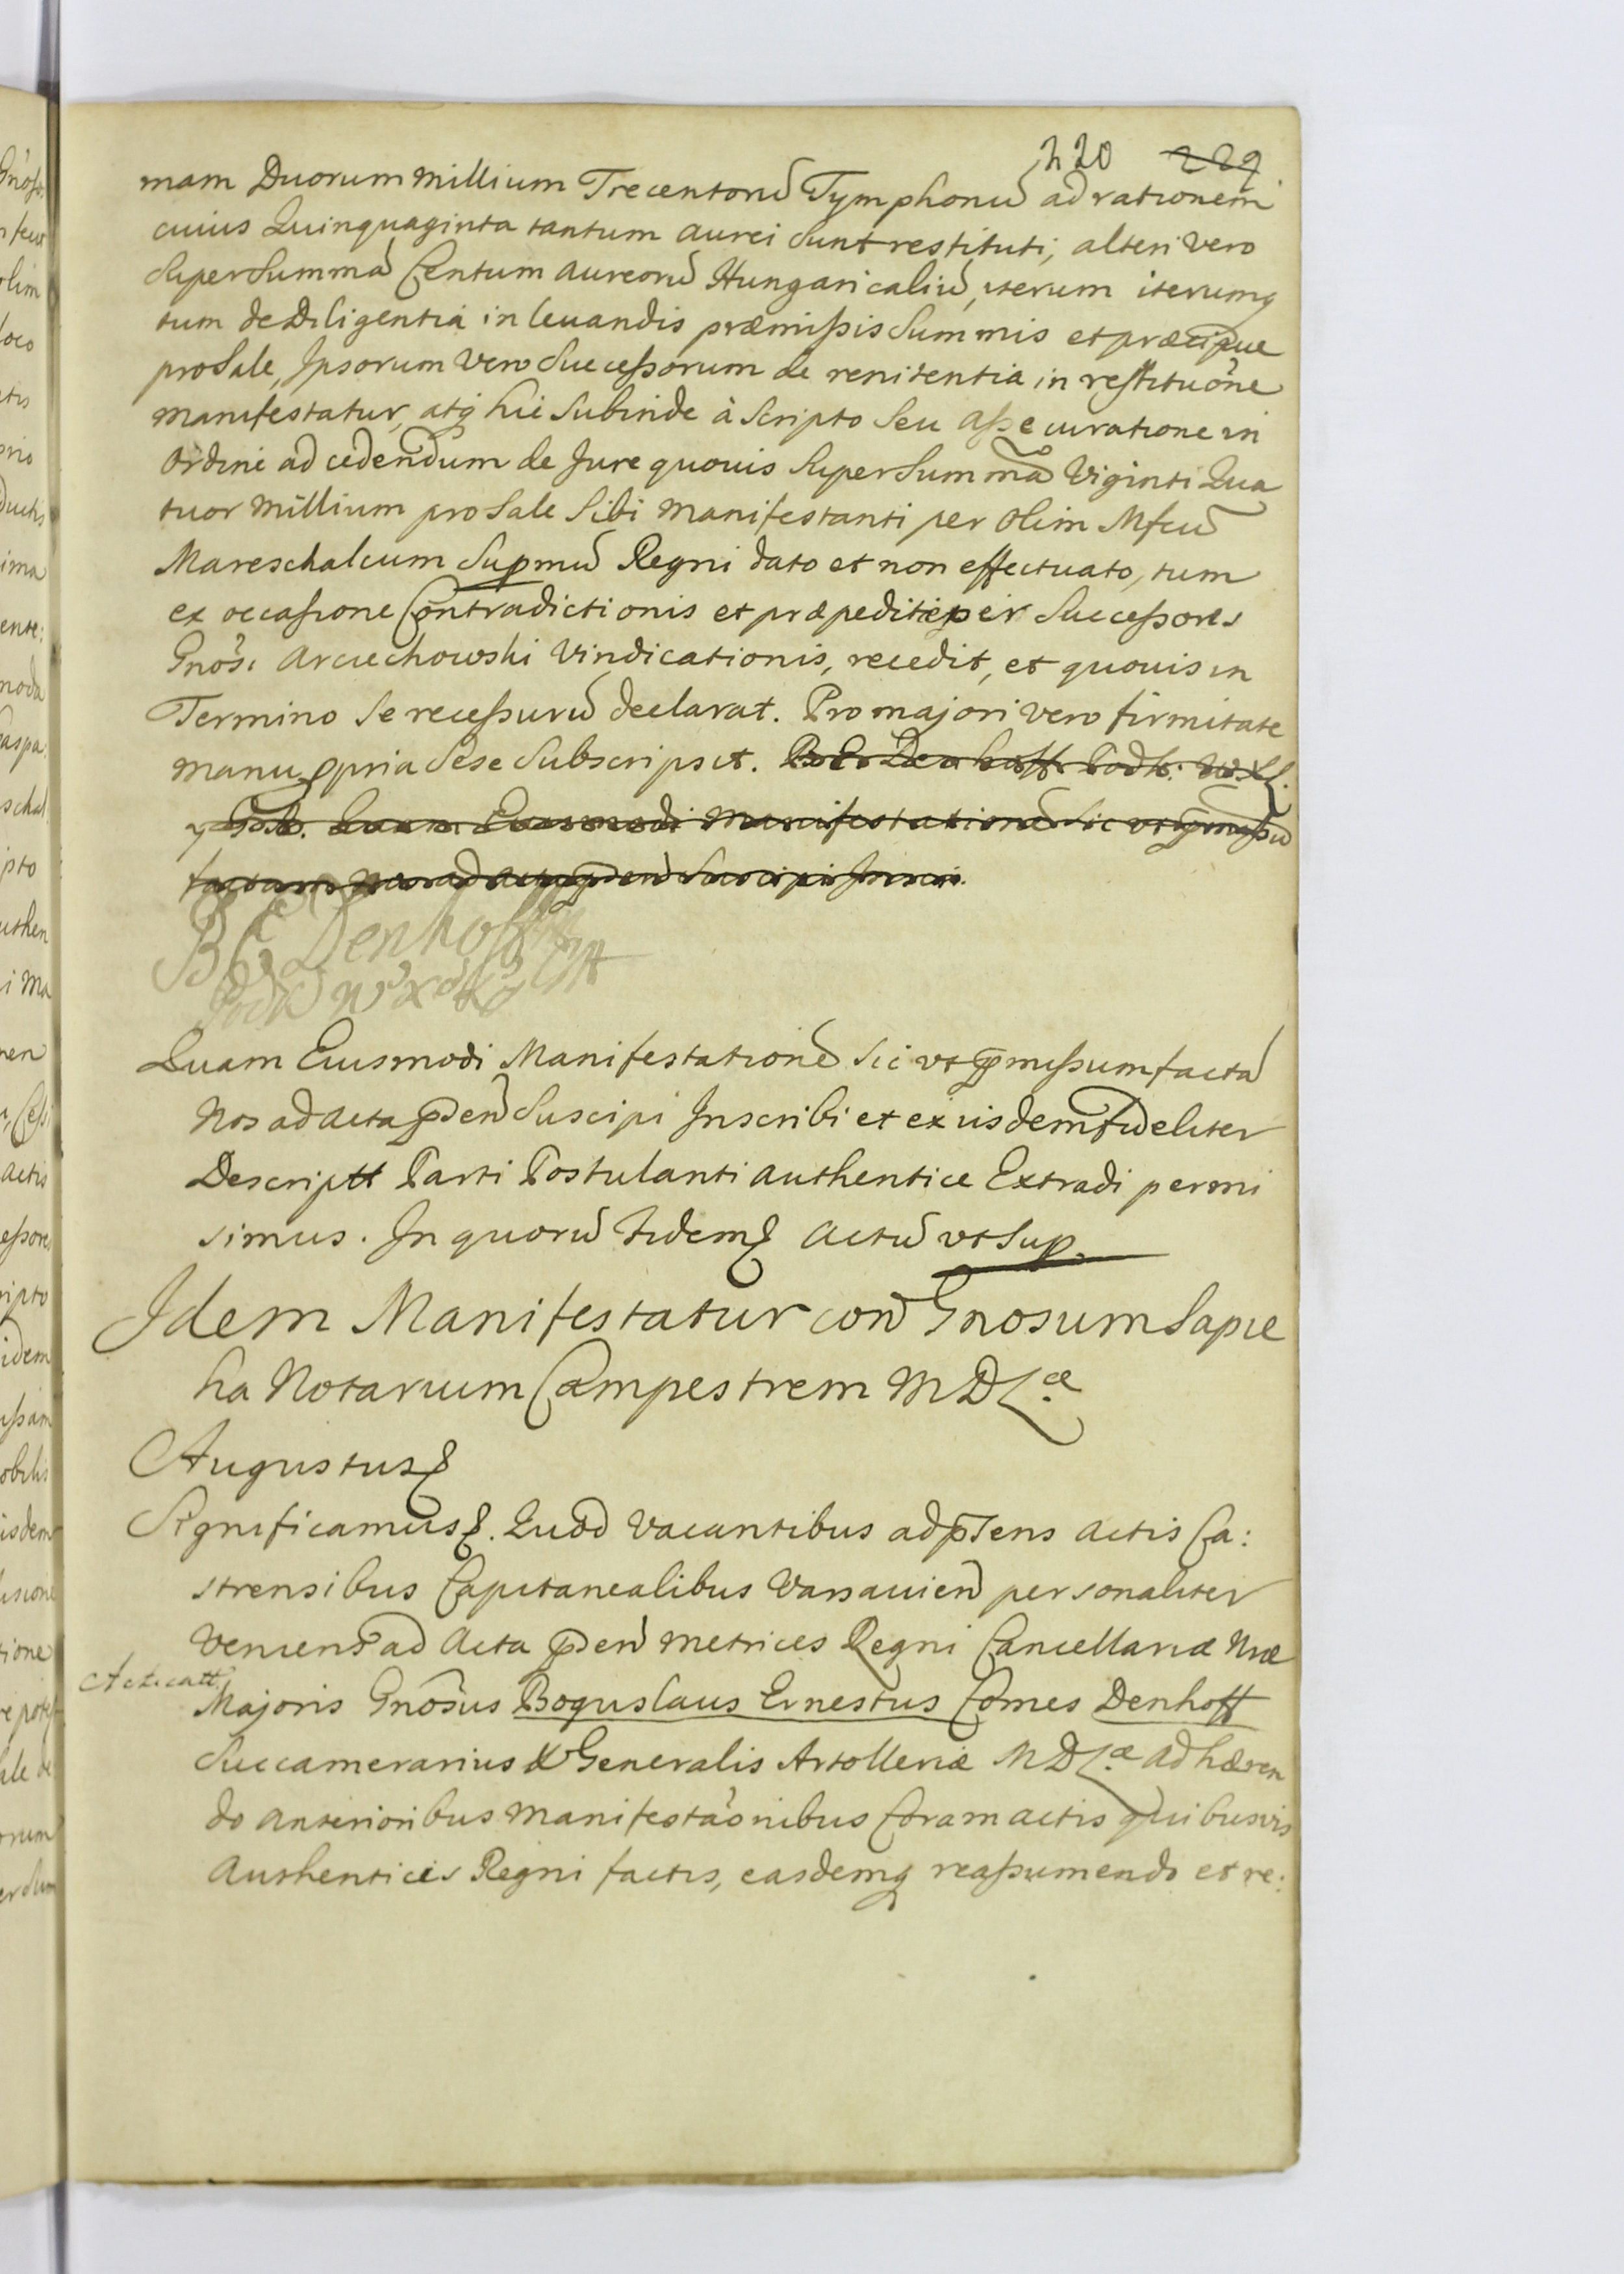 220 229
mam Duorum millium Trecentorũ Tymphonũ ad rationem
cuius Quinquaginta tantum aurei sunt restituti, alteri vero
super summã Centum aureorũ Hungaricaliũ, iterum iterumq
tum de Diligentia in levandis præmissis summis et præcipue
pro Sale, Ipsorum vero Successorum de renitentia in restituõne
manifestatur, atq hic subinde à Scripto seu assecuratione in
ordine ad cedendum de Jure quovis super summã Viginti Qua
tuor millium pro Sale sibi manifestanti per olim Mfcũ
Mareschalcum Supmũ Regni dato et non effectuato, tum
ex occasione Contradictionis et præpeditæ per Successores
Gnõsi Arciechowski Vindicationis, recedit, et quovis in
Termino se recessurũ declarat. Pro majori vero firmitate
manu ppria sese subscripsit. B. E. Denhoff Podk: W. X. L.
y Gãb. Quam Eiusmodi Manifestationẽ sic vt pmissũ
factam Nos ad Acta pñ Suscipi Inscri.
B E Denhoff
Podk W X L
Quam Eiusmodi Manifestationẽ sic vt pmissum factã
Nos ad acta pden̄ suscipi Inscribi et ex iisdem fideliter
Descriptt Parti Postulanti authentice Extradi permi
simus. In quorũ fidem Actũ vt sup.
Idem Manifestatur con̄ Gnosum Sapie
ha Notarium Campestrem M D L.æ
Augustus
Significamus. Quod vacantibus ad pñsens actis Ca:
strensibus Capitanealibus Varsavien̄ personaliter
veniens ad Acta pden̄ metrices Regni Cancellariæ Nræ
Acticatt
Majoris Gnõsus Boguslaus Ernestus Comes Denhoff
Succamerarius & Generalis Artolleriæ M D L.æ adhæren
do anterioribus manifestaõnibus Coram actis quibusvis
Authenticis Regni factis, easdemq reassumendo et re: